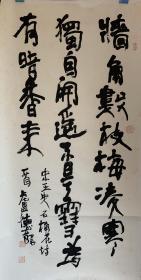 墙角数枝梅凌寒
独自开遥知不是雪为
有暗香来
宋王安石梅花诗